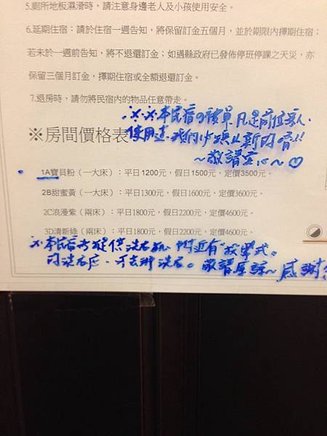 5.廁所地板濕滑時，請注意身邊老人及小孩使用安全。
6.延期住宿：請於住宿一週告知，將保留訂金五個月，並於期限內擇期住宿；
若未於一週前告知，將不退還訂金；如遇縣政府已發佈停班停課之天災，亦
保留三個月訂金，擇期住宿或全額退還訂金。
7.退房時，請勿將民宿內的物品任意帶走。
※※本民宿的 凡是前位客人
使用過，我們 換上新的唷!!
~敬請安心~♡
※房間價格表
1A寶貝粉（一大床）：平日1200元，假日1500元，定價3500元。
2B甜蜜黃（一大床）：平日1300元，假日1600元，定價3600元。
2C浪漫紫（兩床）：平日1800元，假日2200元，定價4600元。
3D清新綠（兩床）：平日1800元，假日2200元，定價4600元。
※本民宿 提供洗衣機，附近有投幣式。
可去那洗衣。敬請原諒~感謝